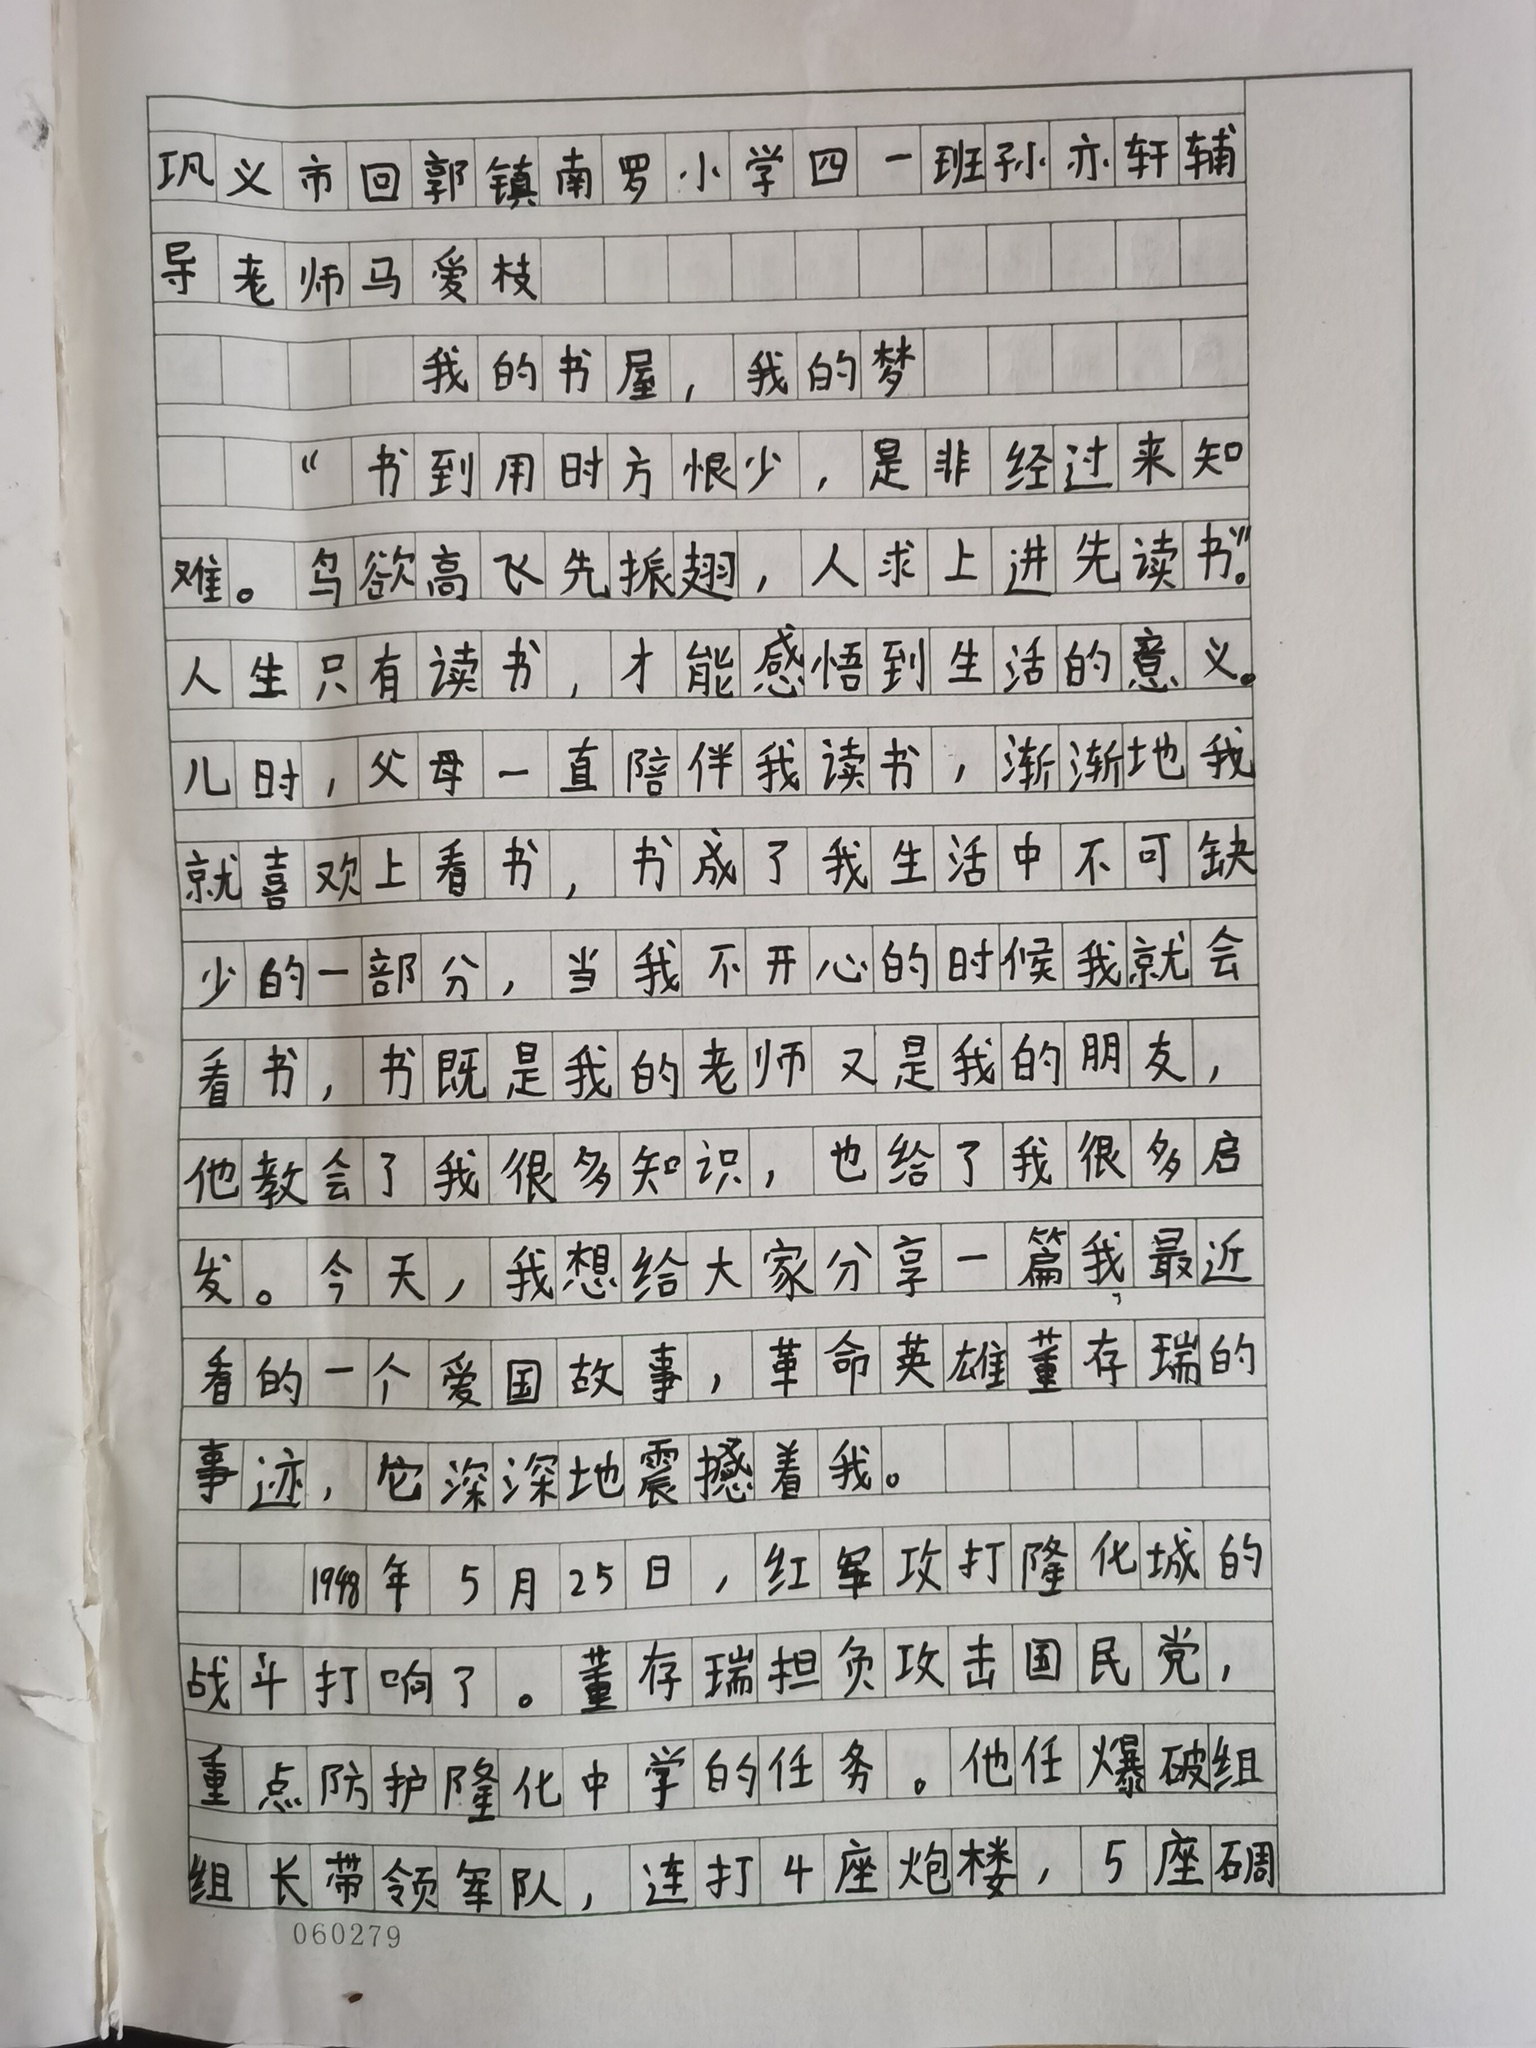 巩义市回郭镇南罗小学四一班孙亦轩辅
导老师马爱枝
我的书屋，我的梦
“书到用时方恨少，是非经过来知
难。鸟欲高飞先振翅，人求上进先读书”。
人生只有读书，才能感悟到生活的意义。
儿时，父母一直陪伴我读书，渐渐地我
就喜欢上看书，书成了我生活中不可缺
少的一部分，当我不开心的时候我就会
看书，书既是我的老师又是我的朋友，
他教会了我很多知识，也给了我很多启
发。今天，我想给大家分享一篇我，最近
看的一个爱国故事，革命英雄董存瑞的
事迹，它深深地震撼着我。
1948年5月25日，红军攻打隆化城的
战斗打响了。董存瑞担负攻击国民党，
重点防护隆化中学的任务。他任爆破组
组长带领军队，连打4座炮楼，5座碉
060279